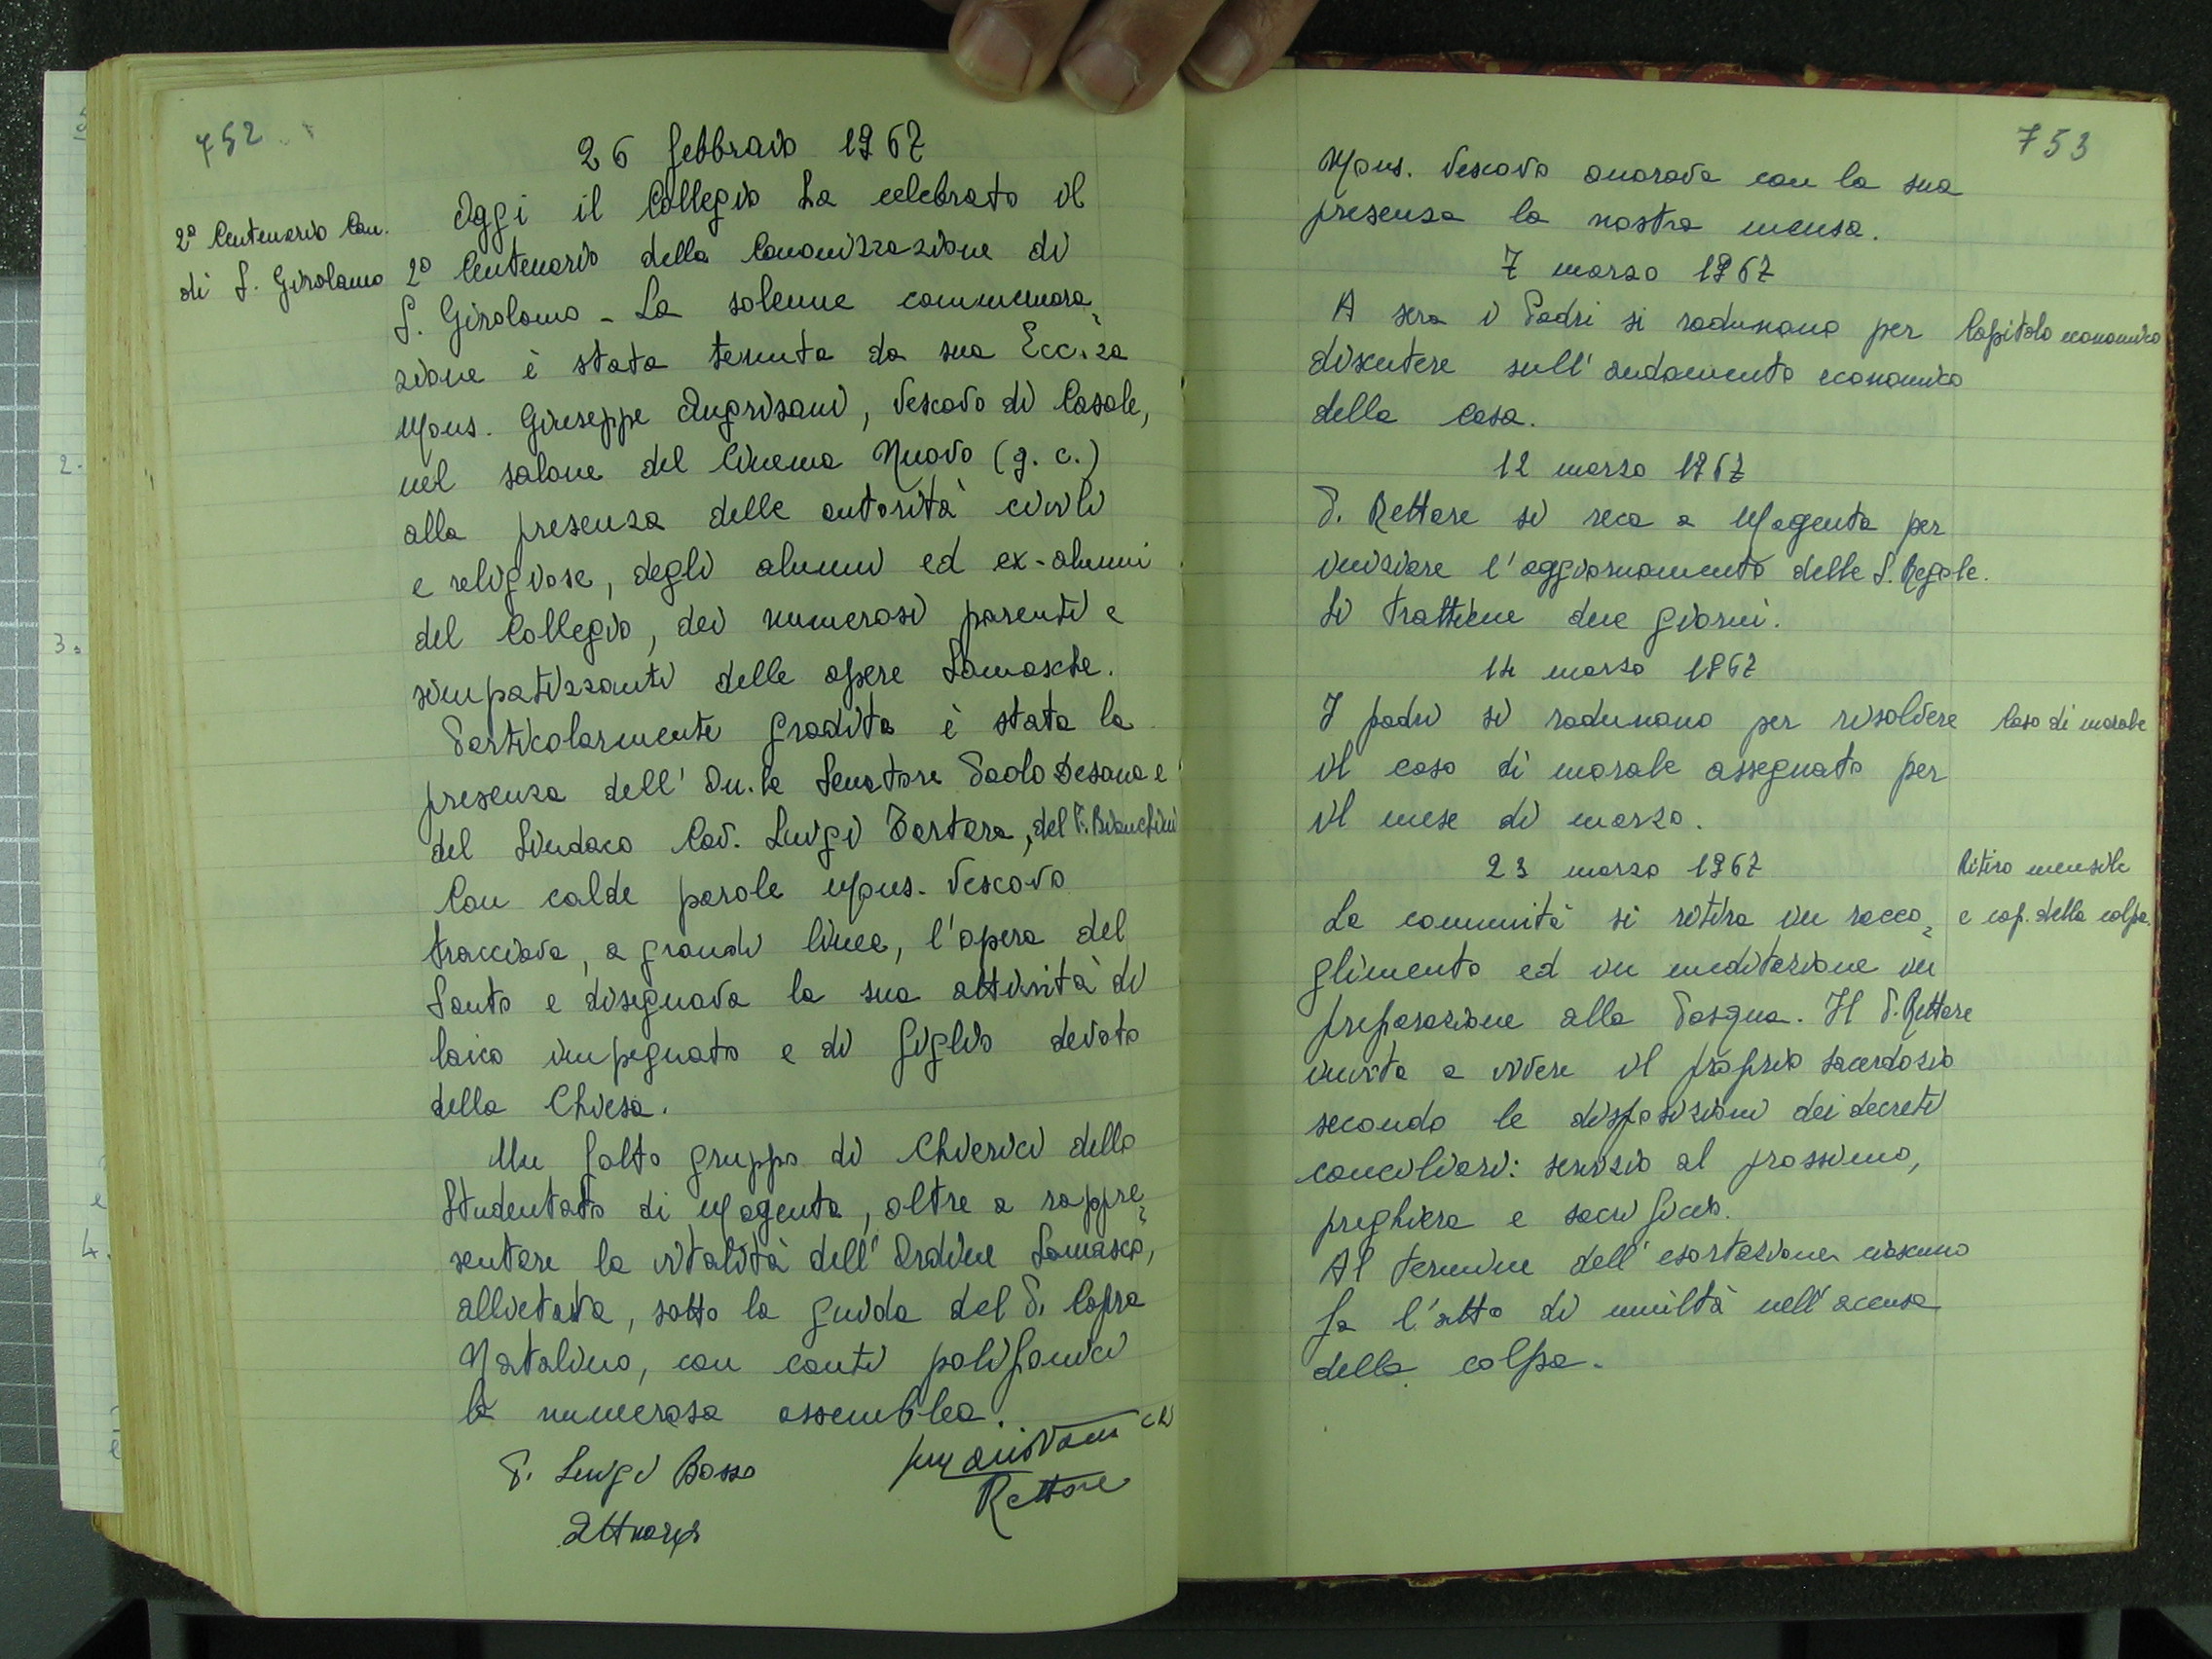 752
26 febbraio 1967
2° Centenario Can.
di S. Girolamo
Oggi il Collegio ha celebrato il
2° Centenario della Canonizzazione di
S. Girolamo - La solenne commemora=
zione è stata tenuta da sua Ecc.za
Mons. Giuseppe Angrisani, Vescovo di Casale,
nel salone del Cinema Nuovo (g. c.)
alla presenza delle autorità civili
e religiose, degli alunni ed ex-alunni
del Collegio, dei numerosi parenti e
simpatizzanti delle opere Somasche.
Particolarmente gradita è stata la
presenza dell' On.le Senatore Paolo Desana e
del Sindaco Cav. Luigi Tartara, del P. Bianchini
Con calde parole Mons. Vescovo
tracciava, a grandi linee, l'opera del
Santo e disegnava la sua attività di
laico impegnato e di figlio devoto
della Chiesa.
Un folto gruppo di Chierici dello
Studentato di Magenta, oltre a rappre=
sentare la vitalità dell' Ordine Somasco,
allietava, sotto la guida del P. Capra
Natalino, con canti polifonici
la numerosa assemblea.
P. Luigi Bosso
Attuario
Rettore
753
Mons. Vescovo onorava con la sua
presenza la nostra mensa.
7 marzo 1967
A sera i Padri si radunano per
discutere sull' andamento economico
della casa.
Capitolo economico
12 marzo 1967
P. Rettore si reca a Magenta per
iniziare l'aggiornamento delle S. Regole.
Si trattiene due giorni.
14 marzo 1967
I padri si radunano per risolvere
il caso di morale assegnato per
il mese di marzo.
Caso di morale
23 marzo 1967
Ritiro mensile
e cap. della colpa.
La comunità si ritira in racco=
glimento ed in meditazione in
preparazione alla Pasqua. Il P. Rettore
invita a vivere il proprio sacerdozio
secondo le disposizioni dei decreti
conciliari: servizio al prossimo,
preghiera e sacrificio.
Al termine dell' esortazione ciascuno
fa l'atto di umiltà nell' accusa
della colpa.